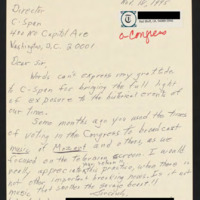 Director
C-Span
400 N. Capitol Ave
Washington, D.C. 20001
Nov 10, 1995
a-Congress
Dear Sir,
Words can't express my gratitude
to C-Span for bringing the full light
of exposure to the historical events of
our times.
Some months ago you used the times
of voting in the Congress to broadcast
music of Moment and others, as we
focused on the televising screen. I would
really appreciate this practice, when there is
not other important breaking news. Is it not
music that soothes the savage breast!!
Sincerely,